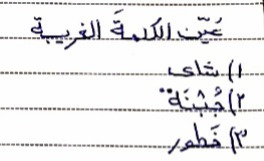 عَيِّن الكلمةَ الغريبة
١) شاى
٢) جُبْنَة
٣) فطور